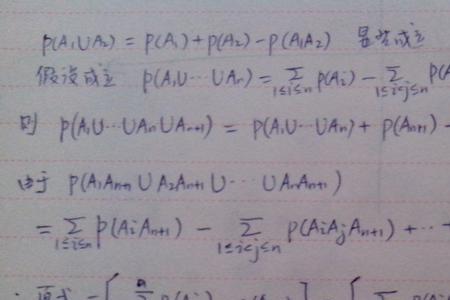 P(A₁∪A₂) = P(A₁) + P(A₂) - P(A₁A₂) 显然成立
假设成立 P(A₁∪···∪Aₙ) = ∑_{1≤i≤n} P(Aᵢ) - ∑_{1≤i<j≤n} P(A
则 P(A₁∪···∪Aₙ∪Aₙ₊₁) = P(A₁∪···∪Aₙ) + P(Aₙ₊₁) -
由于 P(A₁Aₙ₊₁ ∪ A₂Aₙ₊₁ ∪ ··· ∪ AₙAₙ₊₁)
= ∑_{1≤i≤n} P(AᵢAₙ₊₁) - ∑_{1≤i<j≤n} P(AᵢAⱼAₙ₊₁) + ··· -
原式 = [